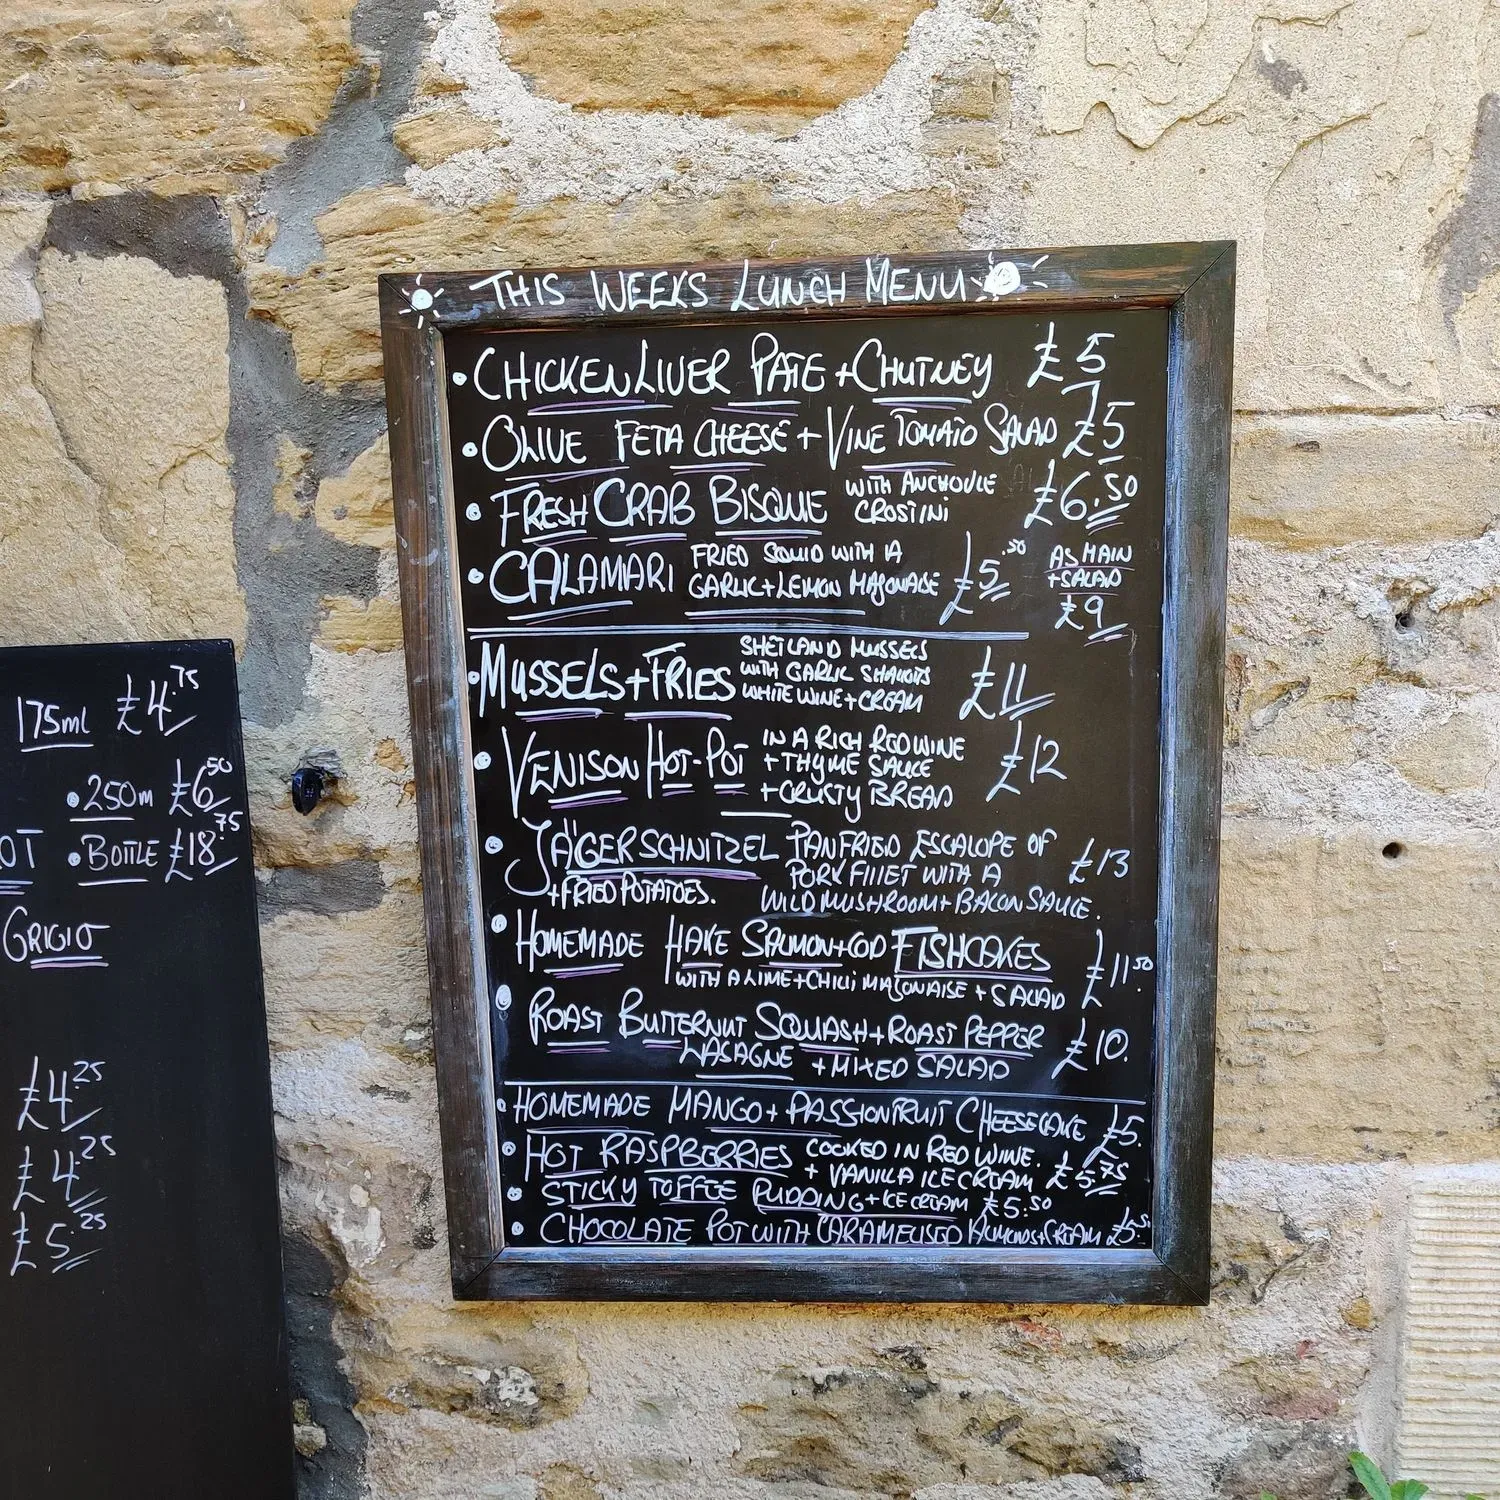 THIS WEEKS LUNCH MENU
• CHICKEN LIVER PATE + CHUTNEY £5
• OLIVE FETA CHEESE + VINE TOMATO SALAD £5
• FRESH CRAB BISQUE WITH ANCHOVIE £6.50
CROSTINI
• CALAMARI FRIED SQUID WITH A
GARLIC + LEMON MAYONAISE £5.50
AS MAIN
+ SALAD
£9
• MUSSELS + FRIES SHETLAND MUSSELS
WITH GARLIC SHALLOTS
WHITE WINE + CREAM £11
• VENISON HOT-POT IN A RICH RED WINE
+ THYME SAUCE
+ CRUSTY BREAD £12
• JÄGERSCHNITZEL PANFRIED ESCALOPE OF
PORK FILLET WITH A £13
+ FRIED POTATOES. WILD MUSHROOM + BACON SAUCE.
• HOMEMADE HAKE SALMON + COD FISHCAKES
WITH A LIME + CHILLI MAYONAISE + SALAD £11.50
• ROAST BUTTERNUT SQUASH + ROAST PEPPER
LASAGNE + MIXED SALAD £10.
• HOMEMADE MANGO + PASSIONFRUIT CHEESECAKE £5.
• HOT RASPBERRIES COOKED IN RED WINE.
+ VANILLA ICE CREAM £5.75
• STICKY TOFFEE PUDDING + ICE CREAM £5.50
• CHOCOLATE POT WITH CARAMELISED ALMONDS + CREAM £5.50
175ml £4.75
• 250m £6.50
OT • BOTTLE £18.75
GRIGIO
£4.25
£4.25
£5.25